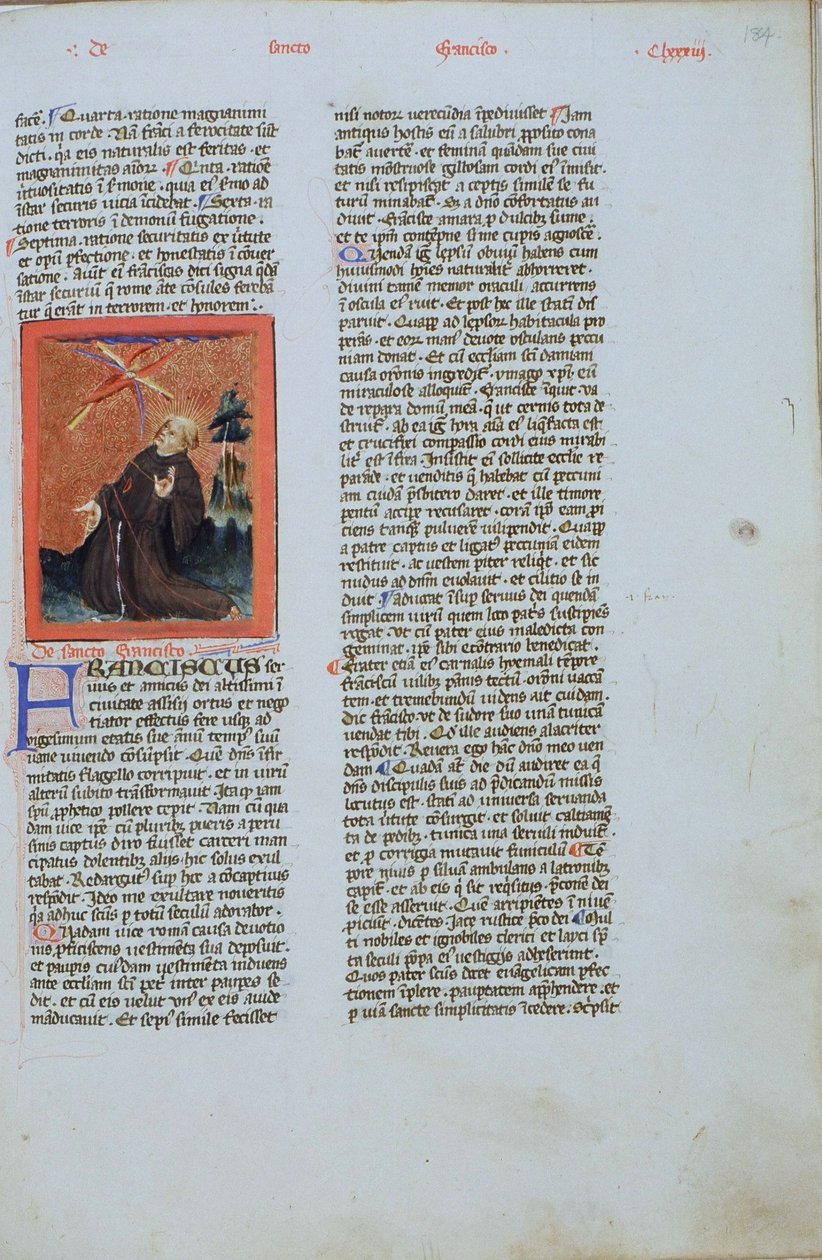 De sancto Francisco. Clxxxiii.
184.
facē. ¶ Quarta ratione magnanimi
tatis in corde. Nā frāci a ferocitate sūt
dicti. qa eis naturalis est feritas. et
magnanimitas aīor. ¶ Quīta. ratione
v̄tuositatis ī s̄mone. quia eı͛ s̄mo ad
īstar securis vicia īcidebat. ¶ Sexta. ra
tione terroris ī demonū fugatione.
¶ Septima. ratione securitatis ex v̄tute
et opū p̄fectione. et honestatis ī cōuer
satione. Aiūt eī franciscas dici signa qdā
īstar securiū q̄ rome āte cōsules fereba
tur q̄ erāt in terrorem. et honorem.
De sancto Francisco
FRANCISCUS ser
uus et amicus dei altissimi ī
ciuitate assisii ortus et nego
tiator effectus fere usq̨ ad
vigesimum etatis sue annū temp9 suū
vane viuendo cōsūpsit. Quē dn̄s īfir
mitatis flagello corripuit. et in virū
alterū subito trāsformauit. Itaq̨ iam
spū p̄phetico pollere cepit. Nam cū qua
dam vice ip̄e cū pluribȝ pueris a peru
sinis captus diro fuisset carceri man
cipatus dolentibȝ alijs. hic solus exul
tabat. Redargut9 sup hͨ a cōcaptiuis
respōdit. Ideo me exultare noueritis
qa adhuc scūs p totū seculū adorabor.
Quadam vice romā causa deuotio
nis p̄ficiscens vestimēta sua deposuit.
et paup̄is cuiusdam vestimēta induens
ante eccliam scī pet͛ inter paup̄es se
dit. et cū eis velut vn9 ex eis auide
māducauit. Et sepi9 simile fecisset
nisi notor verecūdia īpediuisset ¶ Jam
antiqus hostis eū a salubri p̄posito cona
bat͛ auert̄e. et feminā quādam sue ciui
tatis mōstruose gibbosam cordi eı͛ īmisit.
et nisi resipiscat a ceptis similē se fu
turū minabat͛. Sȝ a dn̄o cōfortatus au
diuit. Francisce amara p dulcibȝ sume.
et te ip̄m contēpne si me cupis agnosce͛.
Quendā ig͛ lep̄sū obuiū habens cum
huiusmodi hoīes naturalit͛ abhorreret.
diuini tamē memor oraculi accurrens
ī oscula eı͛ ruit. Et post hͨ ille statī dis
paruit. Quap̄p̄ ad lep̄sor habitacula pro
perās. et eor man9 deuote osculans peccu
niam donat. Et cū eccliam scī damiani
causa orōnis ingredit͛. ymago xp̄i eū
miraculose alloquit͛. Francisce īquit va
de repara domū meā. q̄ ut cernis tota de
struit͛. Ab ea ig͛ hora aīa eı͛ liq̄facta est
et crucifixi compassio cordi eius mirabi
lit͛ est īfixa. Insistit eī sollicite ecclie re
parāde. et venditis q̄ habebat cū peccuni
am cuidā p̄sbitero daret. et ille timore
parentū accip̄e recusaret. corā ip̄o eam p̄i
ciens tanq̄ puluerē vilipendit. Quap̄p̄
a patre captus et ligat9 peccuniā eidem
restituit. ac vestem pariter reliqt. et sic
nudus ad dn̄m euolauit. et cilitio se in
duit ¶ aduocat īsup seruus dei quendā
simplicem virū quem loco pat͛s suscipiēs
rogat. vt cū pater eius maledicta con
geminat. ip̄e sibi ecōtrario benedicat.
¶ Frater etiā eı͛ carnalis hyemali tēpore
franciscū vilibȝ pānis tectū. orōni vacā
tem. et tremebundū videns ait cuidam.
Dic frācisco vt de sudore suo vnā tunicā
vendat tibi. Qd̄ ille audiens alacriter
respōdit. Reuera ego hāc dn̄o meo ven
dam ¶ Quadā at͛ die dū audiret ea q̄
dn̄s discipulis suis ad p̄dicandū missis
locutus est. statī ad uniuersa seruanda
tota v̄tute cōsurgit. et soluit caltiamē
ta de pedibȝ. tunica vna se vili induit.
et p corrigia mutauit funiculū ¶ Tē
pore niuis p siluam ambulans a latronibȝ
capit͛. et ab eis q̄s sit reqisitus. p̄conē dei
se esse asseruit. Quē arripientes ī niuē
p̄iciūt. dicētes. Jace rustice p̄co dei ¶ Mul
ti nobiles et ignobiles clerici et layci sp̄
ta seculi pōpa eı͛ vestigijs adheserunt.
Quos pater scūs docet euāgelicam p̄fec
tionem īplere. paup̄tatem app̄hendere. et
p viā sancte simplicitatis īcedere. Scripsit